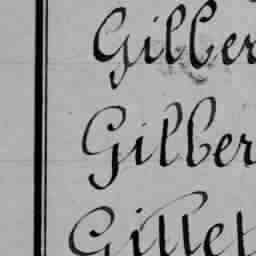 Gilber
Gilber
Gillet